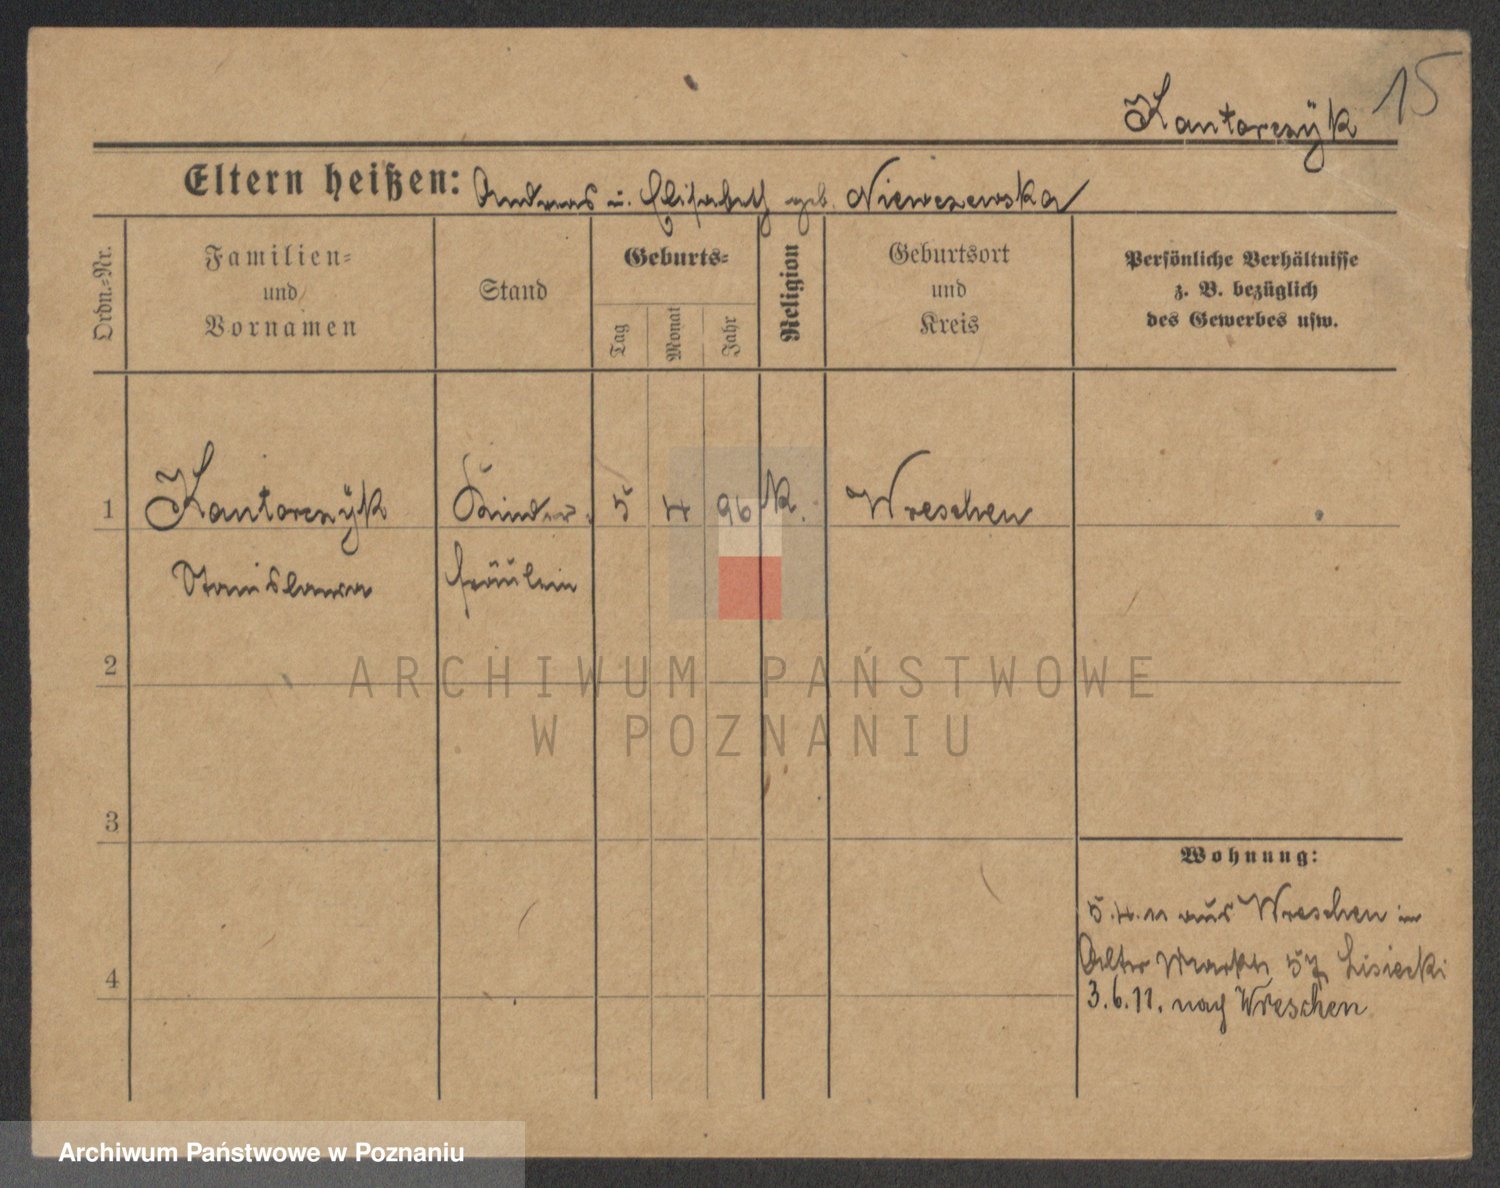 15
Kantorczÿk
Eltern heißen: Andreas u. Elisabeth geb. Niewczewska
Ordn.-Nr.
Familien-
und
Vornamen
Stand
Geburts-
Tag
Monat
Jahr
Religion
Geburtsort
und
Kreis
Persönliche Verhältnisse
z. B. bezüglich
des Gewerbes usw.
1 Kantorczÿk Kinder- 5 4 96 K. Wreschen
Stanislawa fräulein
2
3
4
Wohnung:
5.4.11 aus Wreschen in
Alter Markt 57 Lisiecki
3.6.11. nach Wreschen
ARCHIWUM PAŃSTWOWE
W POZNANIU
Archiwum Państwowe w Poznaniu